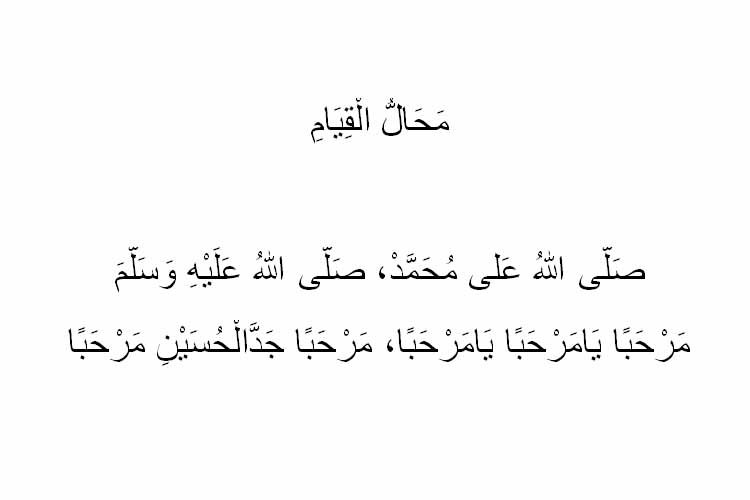 مَحَالُّ الْقِيَامِ
صَلَّى اللهُ عَلى مُحَمَّدْ، صَلَّى اللهُ عَلَيْهِ وَسَلَّمَ
مَرْحَبًا يَامَرْحَبًا يَامَرْحَبًا، مَرْحَبًا جَدَّالْحُسَيْنِ مَرْحَبًا